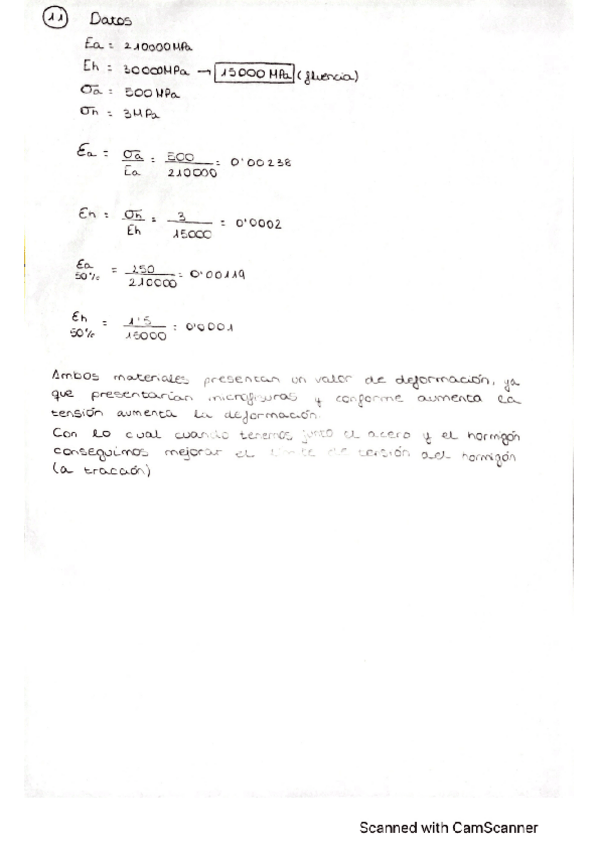 11 Datos
Ea = 210000MPa
Eh = 30000MPa → 15000 MPa (fluencia)
σa = 500 MPa
σh = 3MPa
Ea = σa/Ea = 500/210000 = 0'00238
Eh = σh/Eh = 3/15000 = 0'0002
Ea 50% = 250/210000 = 0'00119
Eh 50% = 1'5/15000 = 0'0001
Ambos materiales presentan un valor de deformación, ya
que presentarían microfisuras y conforme aumenta la
tensión aumenta la deformación.
Con lo cual cuando tenemos junto el acero y el hormigón
conseguimos mejorar el límite de tensión del hormigón
(a tracción)
Scanned with CamScanner